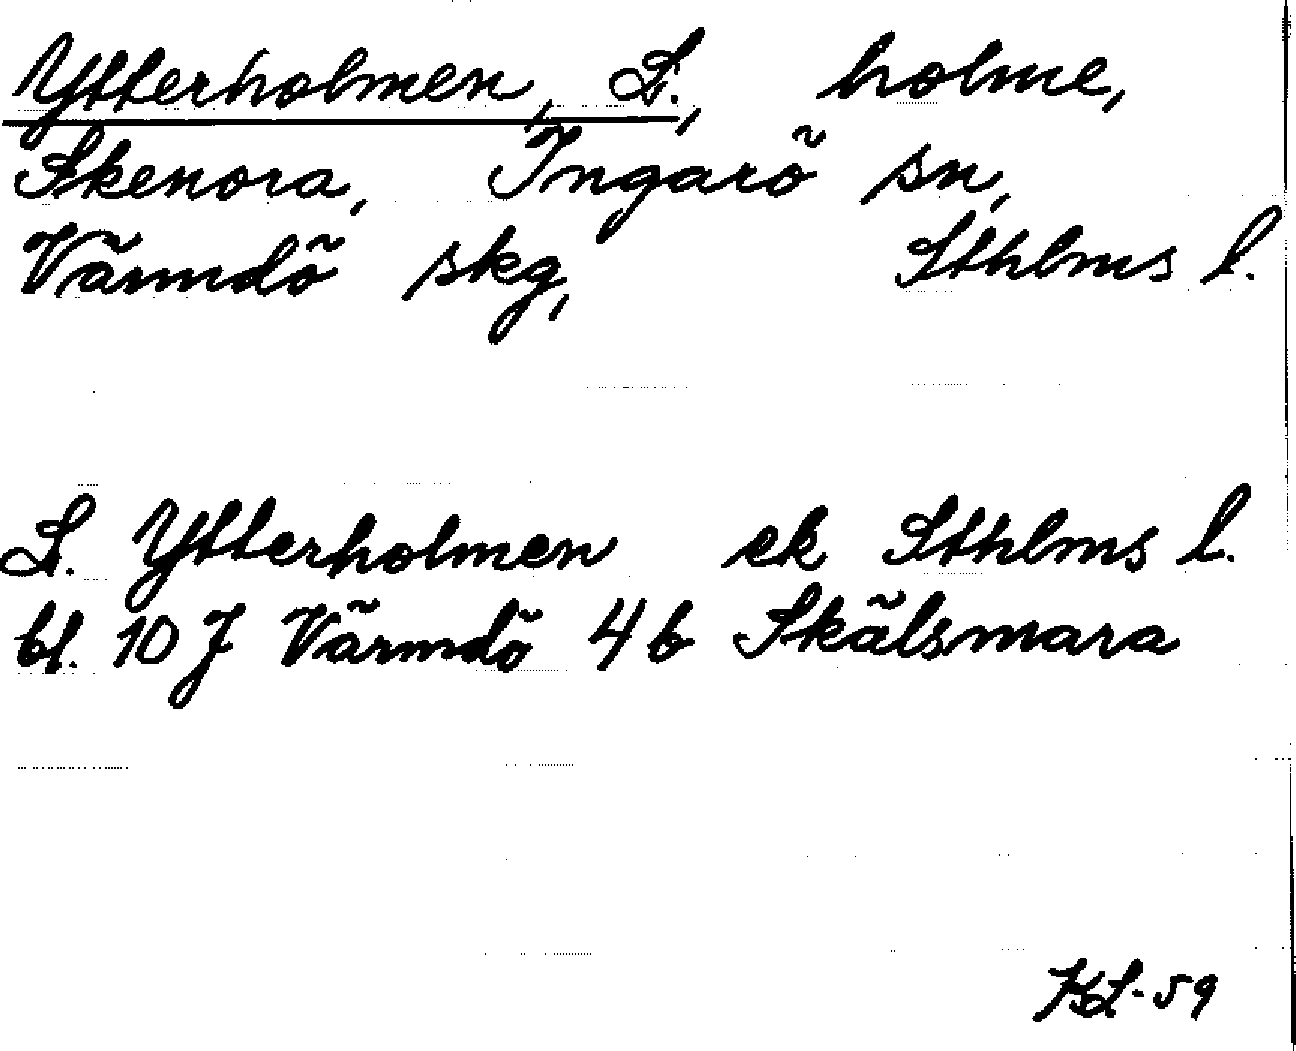 Ytterholmen, L., holme,
Skenora, Ingarö sn,
Värmdö skg, Sthlms l.
L. Ytterholmen ek Sthlms l.
bl. 10 J Värmdö 4b Skälsmara
KL-59